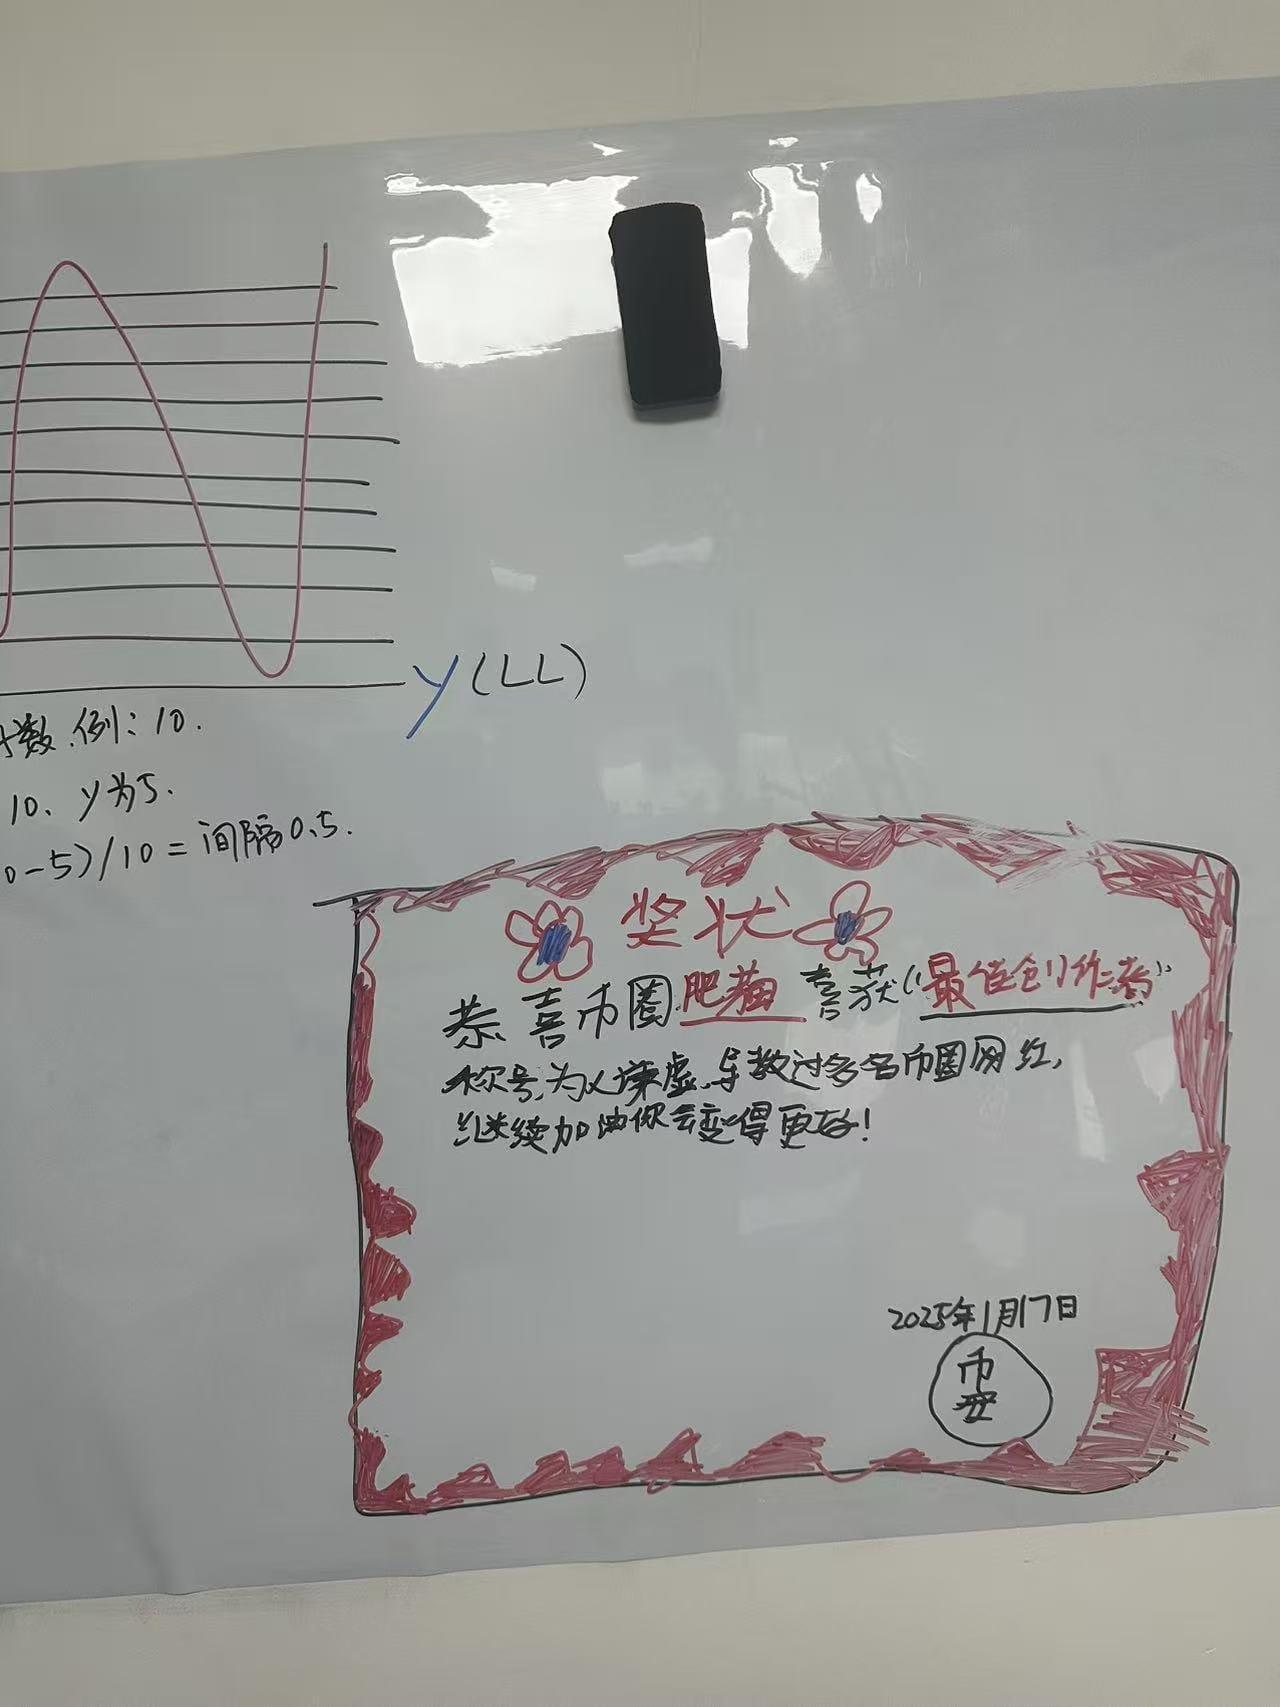 y(LL)
数.例:10.
10、y为5.
0-5)/10=间隔0.5.
奖状
恭喜币圈肥猫喜获“最佳创作者”
称号,为人谦虚,导教过多名币圈网红,
继续加油你会变得更好!
2025年1月17日
币
安